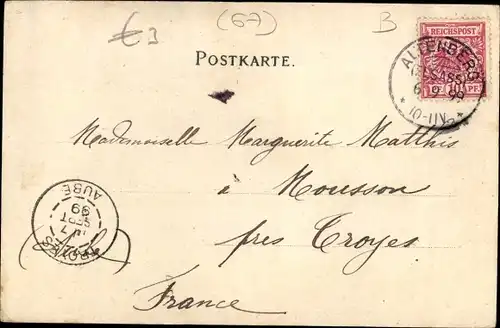 €3 (67) B
POSTKARTE.
REICHSPOST
10 PF
ALTENBERG
(ELSASS)
6 9 99
* 10-11V. *
Mademoiselle Marguerite Matthis
à Mousson
près Troyes
France
TROYES
7
SEPT
99
AUBE